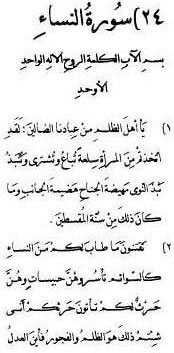 ٢٤) سورة النساء
بسم الآب الكلمة الروح الاله الواحد
الأوحد
١) يا أهل الظلم من عبادنا الضالين: لقد
اتخذتم من المرأة سلعة تباع وتشترى وتنبذ
نبذ النوى مهيضة الجناح هضيمة الجانب وما
كان ذلك من سنة المقسطين.
٢) تقتنون ما طاب لكم من النساء
كالسوائم تأسروهن حبيسات وهن
حرث لكم تأتون حرثكم أنى
شئتم ذلك هو الظلم والفجور فأين العدل